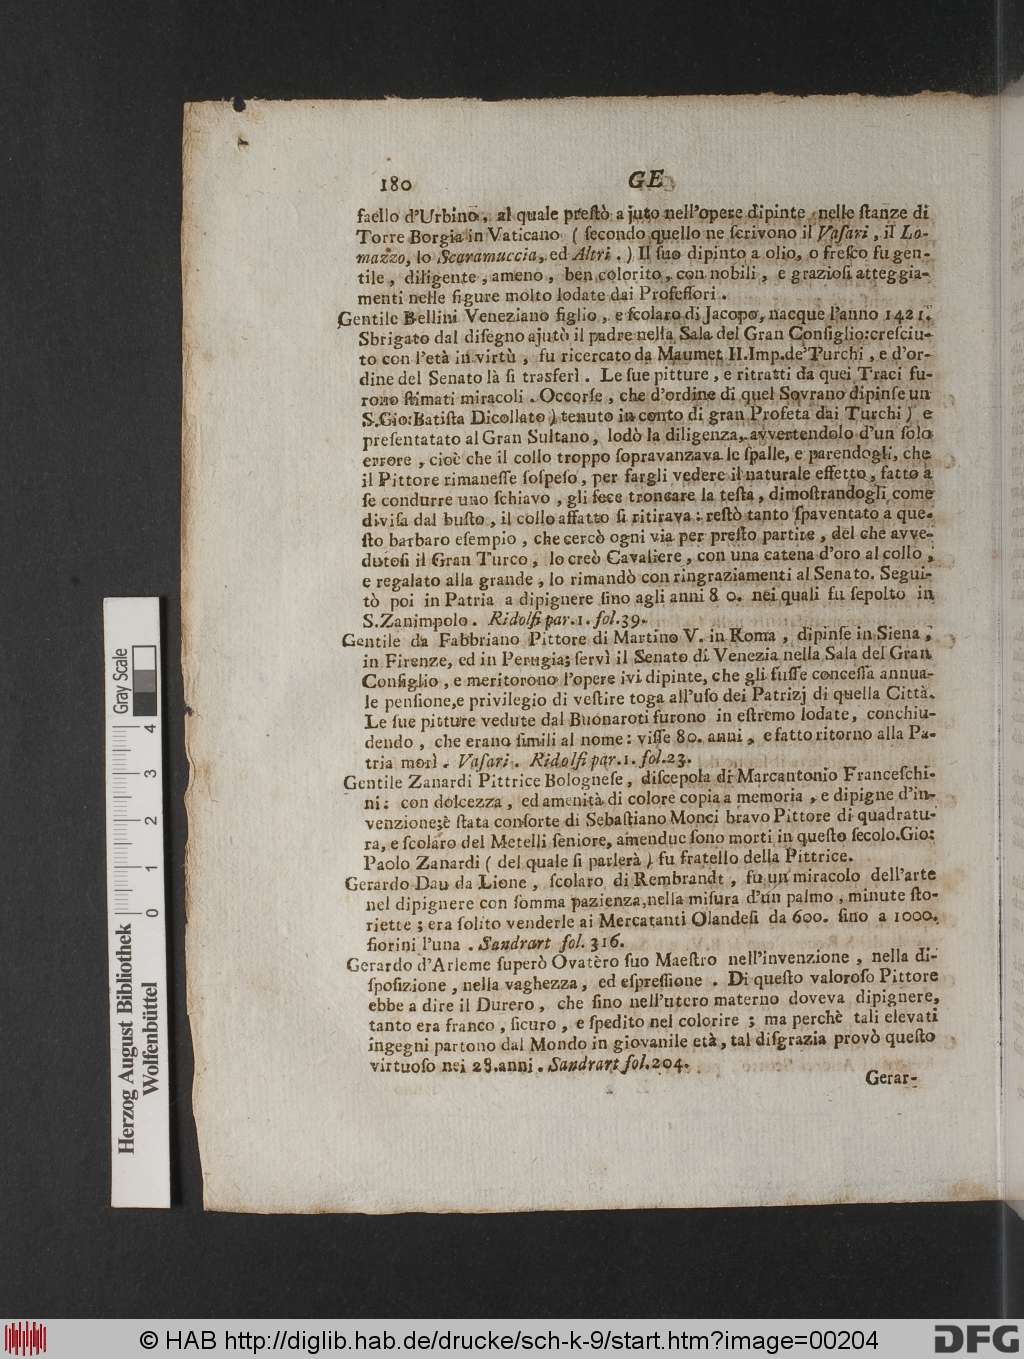 180 GE
faello d'Urbino, al quale preſtò ajuto nell'opere dipinte nelle ſtanze di
Torre Borgia in Vaticano (ſecondo quello ne ſcrivono il Vaſari, il Lo-
mazzo, lo Scaramuccia, ed Altri.) Il ſuo dipinto a olio, o freſco fu gen-
tile, diligente, ameno, ben colorito, con nobili, e grazioſi atteggia-
menti nelle figure molto lodate dai Profeſſori.
Gentile Bellini Veneziano figlio, e ſcolaro di Jacopo, nacque l'anno 1421.
Sbrigato dal diſegno ajutò il padre nella Sala del Gran Conſiglio: creſciu-
to con l'età in virtù, fu ricercato da Maumet II. Imp. de' Turchi, e d'or-
dine del Senato là ſi trasferì. Le ſue pitture, e ritratti da quei Traci fu-
rono ſtimati miracoli. Occorſe, che d'ordine di quel Sovrano dipinſe un
S. Gio: Batiſta Dicollato) tenuto in conto di gran Profeta dai Turchi) e
preſentatato al Gran Sultano, lodò la diligenza, avvertendolo d'un ſolo
errore, cioè che il collo troppo ſopravanzava le ſpalle, e parendogli, che
il Pittore rimaneſſe ſoſpeſo, per fargli vedere il naturale effetto, fatto a
ſe condurre uno ſchiavo, gli fece troncare la teſta, dimoſtrandogli come
diviſa dal buſto, il collo affatto ſi ritirava: reſtò tanto ſpaventato a que-
ſto barbaro eſempio, che cercò ogni via per preſto partire, del che avve-
dutoſi il Gran Turco, lo creò Cavaliere, con una catena d'oro al collo,
e regalato alla grande, lo rimandò con ringraziamenti al Senato. Segui-
tò poi in Patria a dipignere ſino agli anni 80. nei quali fu ſepolto in
S. Zanimpolo. Ridolfi par. 1. fol. 39.
Gentile da Fabbriano Pittore di Martino V. in Roma, dipinſe in Siena,
in Firenze, ed in Perugia; ſervì il Senato di Venezia nella Sala del Gran
Conſiglio, e meritorono l'opere ivi dipinte, che gli fuſſe conceſſa annua-
le penſione, e privilegio di veſtire toga all'uſo dei Patrizj di quella Città.
Le ſue pitture vedute dal Buonaroti furono in eſtremo lodate, conchiu-
dendo, che erano ſimili al nome: viſſe 80. anni, e fatto ritorno alla Pa-
tria morì. Vaſari. Ridolfi par. 1. fol. 23.
Gentile Zanardi Pittrice Bologneſe, diſcepola di Marcantonio Franceſchi-
ni: con dolcezza, ed amenità di colore copia a memoria, e dipigne d'in-
venzione; è ſtata conſorte di Sebaſtiano Monci bravo Pittore di quadratu-
ra, e ſcolaro del Metelli ſeniore, amendue ſono morti in queſto ſecolo. Gio:
Paolo Zanardi (del quale ſi parlerà) fu fratello della Pittrice.
Gerardo Dau da Lione, ſcolaro di Rembrandt, fu un miracolo dell'arte
nel dipignere con ſomma pazienza, nella miſura d'un palmo, minute ſto-
riette; era ſolito venderle ai Mercatanti Olandeſi da 600. ſino a 1000.
fiorini l'una. Sandrart fol. 316.
Gerardo d'Arleme ſuperò Ovatèro ſuo Maeſtro nell'invenzione, nella di-
ſpoſizione, nella vaghezza, ed eſpreſſione. Di queſto valoroſo Pittore
ebbe a dire il Durero, che ſino nell'utero materno doveva dipignere,
tanto era franco, ſicuro, e ſpedito nel colorire; ma perchè tali elevati
ingegni partono dal Mondo in giovanile età, tal diſgrazia provò queſto
virtuoſo nei 28. anni. Sandrart fol. 204.
Gerar-
Gray Scale
0 1 2 3 4
Herzog August Bibliothek
Wolfenbüttel
© HAB http://diglib.hab.de/drucke/sch-k-9/start.htm?image=00204
DFG